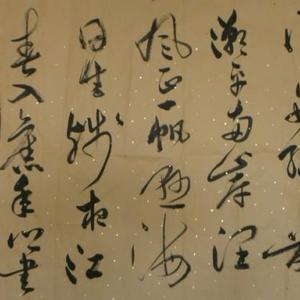 潮平兩岸闊
風正一帆懸海
日生殘夜江
春入舊年鄉書